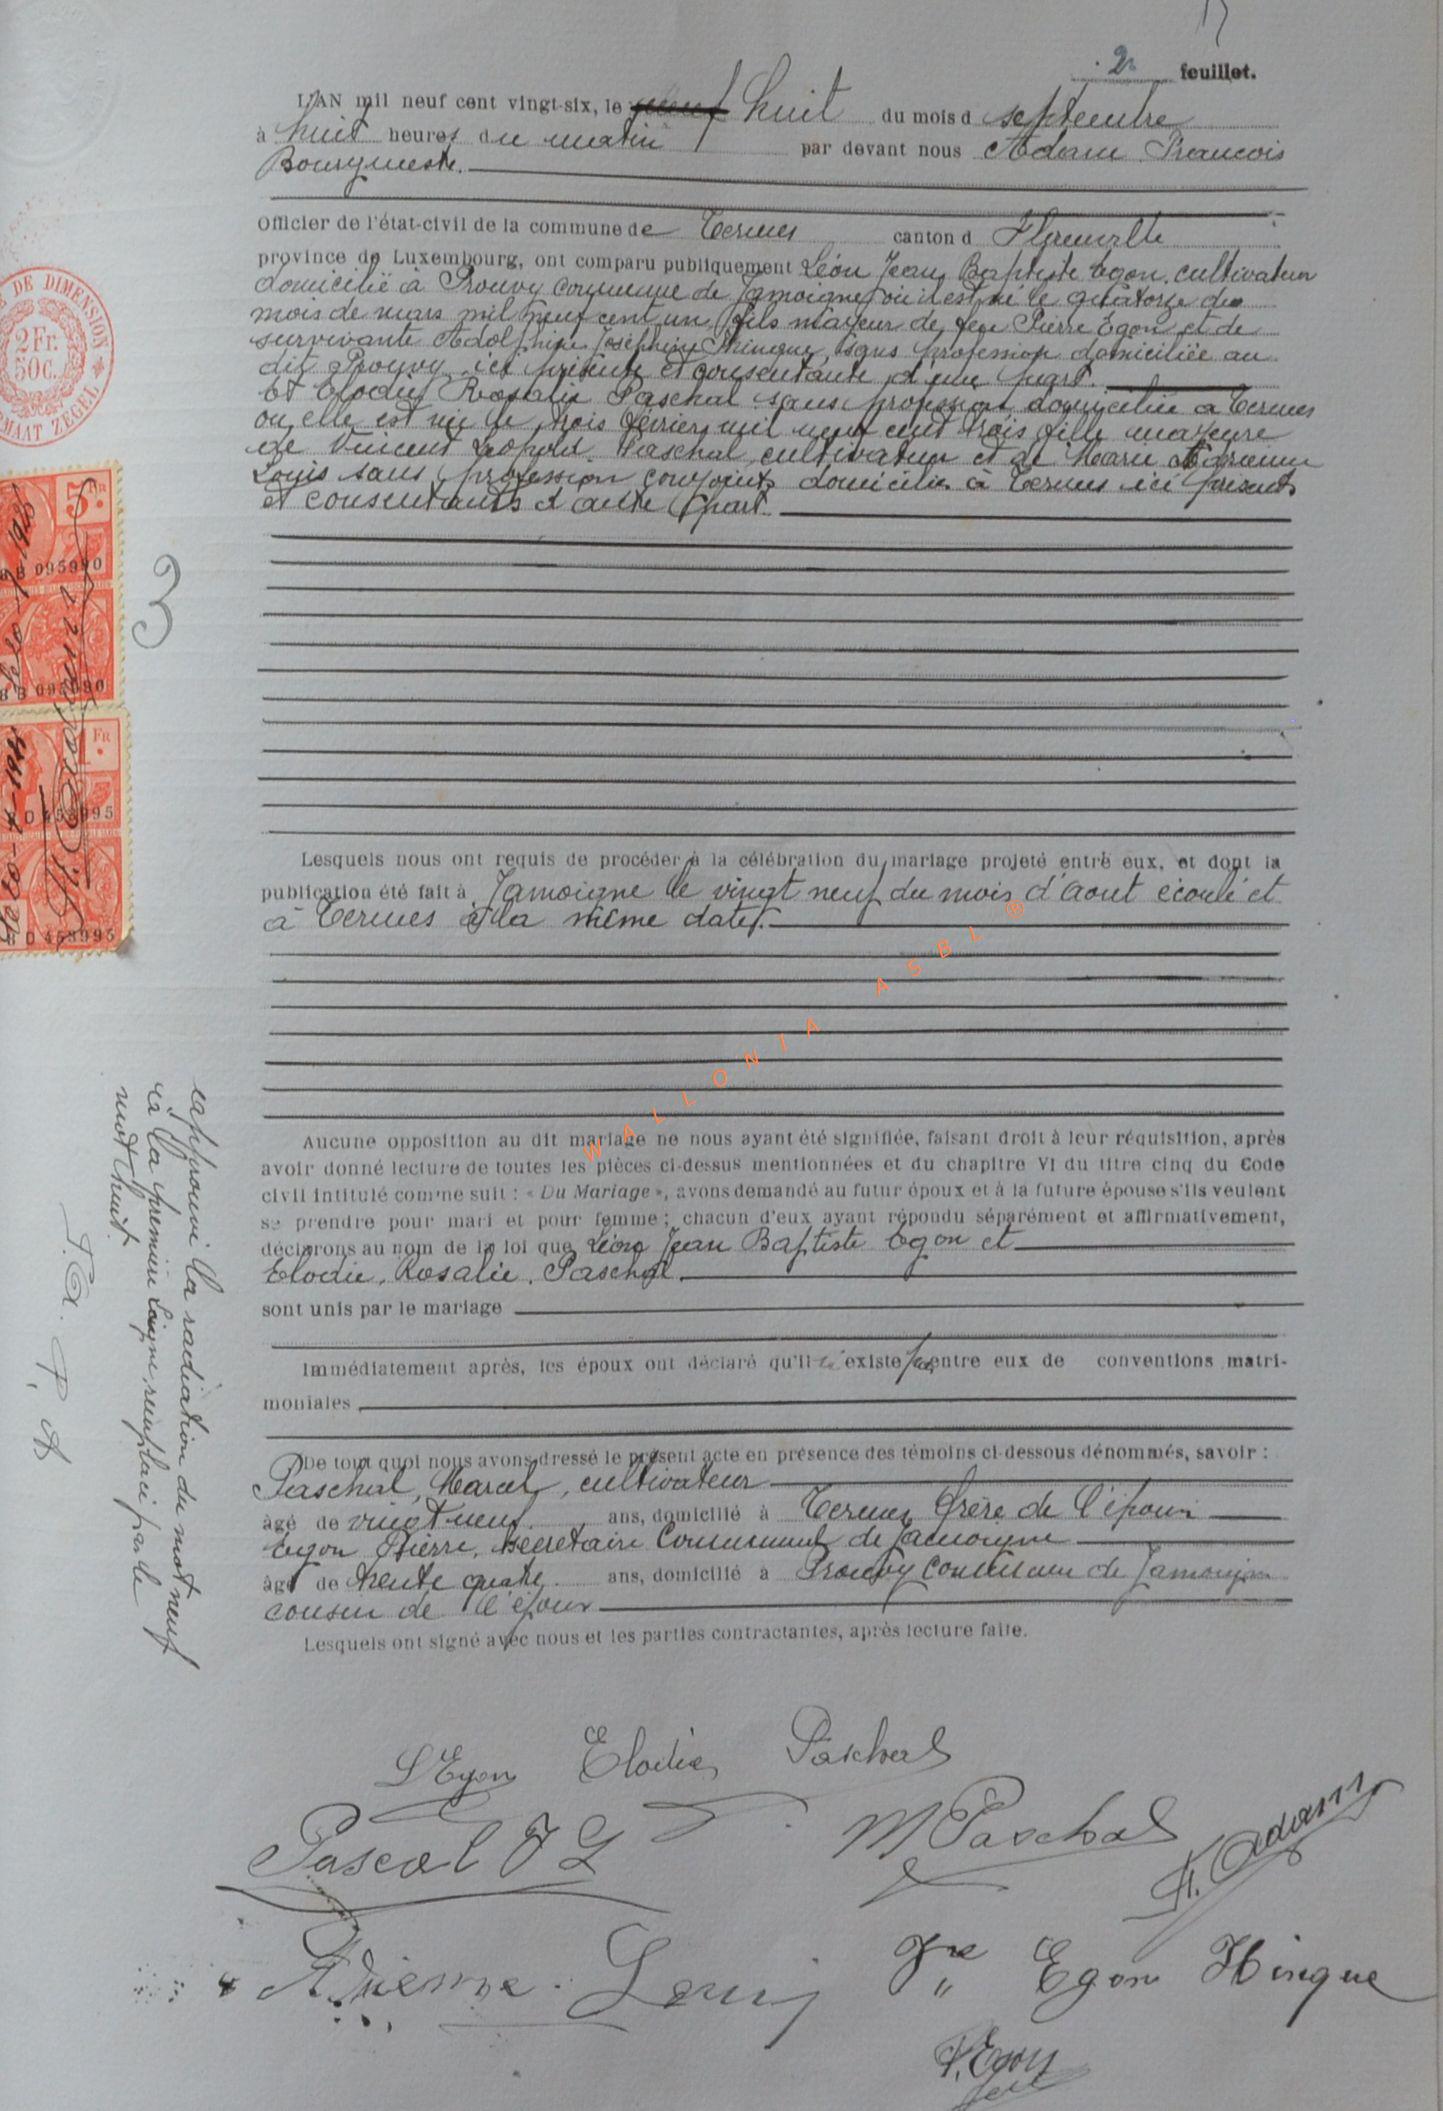 2 feuillet.
L'AN mil neuf cent vingt-six, le neuf huit du mois d septembre
à huit heures du matin par devant nous Adam François
Bourgmestre.
Officier de l'état-civil de la commune de Termes canton d Florenville
province de Luxembourg, ont comparu publiquement Léon Jean Baptiste Egon, cultivateur
domicilié à Prouvy commune de Jamoigne où il est né le quatorze du
mois de mars mil neuf cent un fils majeur de feu Pierre Egon et de
survivante Adolphine Joséphine Hinque, sans profession domiciliée au
dit Prouvy ici présente et consentante d'une part.
Et Elodie Rosalie Paschal sans profession domiciliée à Termes
où elle est née le trois février mil neuf cent trois fille majeure
de Vincent Léopold Paschal cultivateur et de Marie
Louis sans profession conjoints domiciliés à Termes ici présents
et consentants d'autre part.
Lesquels nous ont requis de procéder à la célébration du mariage projeté entre eux, et dont la
publication été fait à Jamoigne le vingt neuf du mois d'aout écoulé et
à Termes à la même date.
Aucune opposition au dit mariage ne nous ayant été signifiée, faisant droit à leur réquisition, après
avoir donné lecture de toutes les pièces ci-dessus mentionnées et du chapitre VI du titre cinq du Code
civil intitulé comme suit : « Du Mariage », avons demandé au futur époux et à la future épouse s'ils veulent
se prendre pour mari et pour femme ; chacun d'eux ayant répondu séparément et affirmativement,
déclarons au nom de la loi que Léon Jean Baptiste Egon et
Elodie, Rosalie, Paschal
sont unis par le mariage
Immédiatement après, les époux ont déclaré qu'il n'existe pas entre eux de conventions matri-
moniales
De tout quoi nous avons dressé le présent acte en présence des témoins ci-dessous dénommés, savoir :
Paschal, Marcel, cultivateur
âgé de vingt neuf ans, domicilié à Termes frère de l'épouse
Egon Pierre, secrétaire Communal de Jamoigne
âgé de trente quatre ans, domicilié à Prouvy commune de Jamoigne
cousin de l'époux
Lesquels ont signé avec nous et les parties contractantes, après lecture faite.
L Egon Elodie Paschal
Pascal V L M Paschal F. Adam
Louis Vve Egon Hinque
P. Egon
approuvé la radiation du mot neuf
à la première ligne, remplacé par le
mot huit.
P. A
3
DE DIMENSION
2 Fr.
50 C.
FORMAAT ZEGEL
5 FR
B 095990
B 095990
1 FR
D 453995
D 453995
WALLONIA ASBL ®